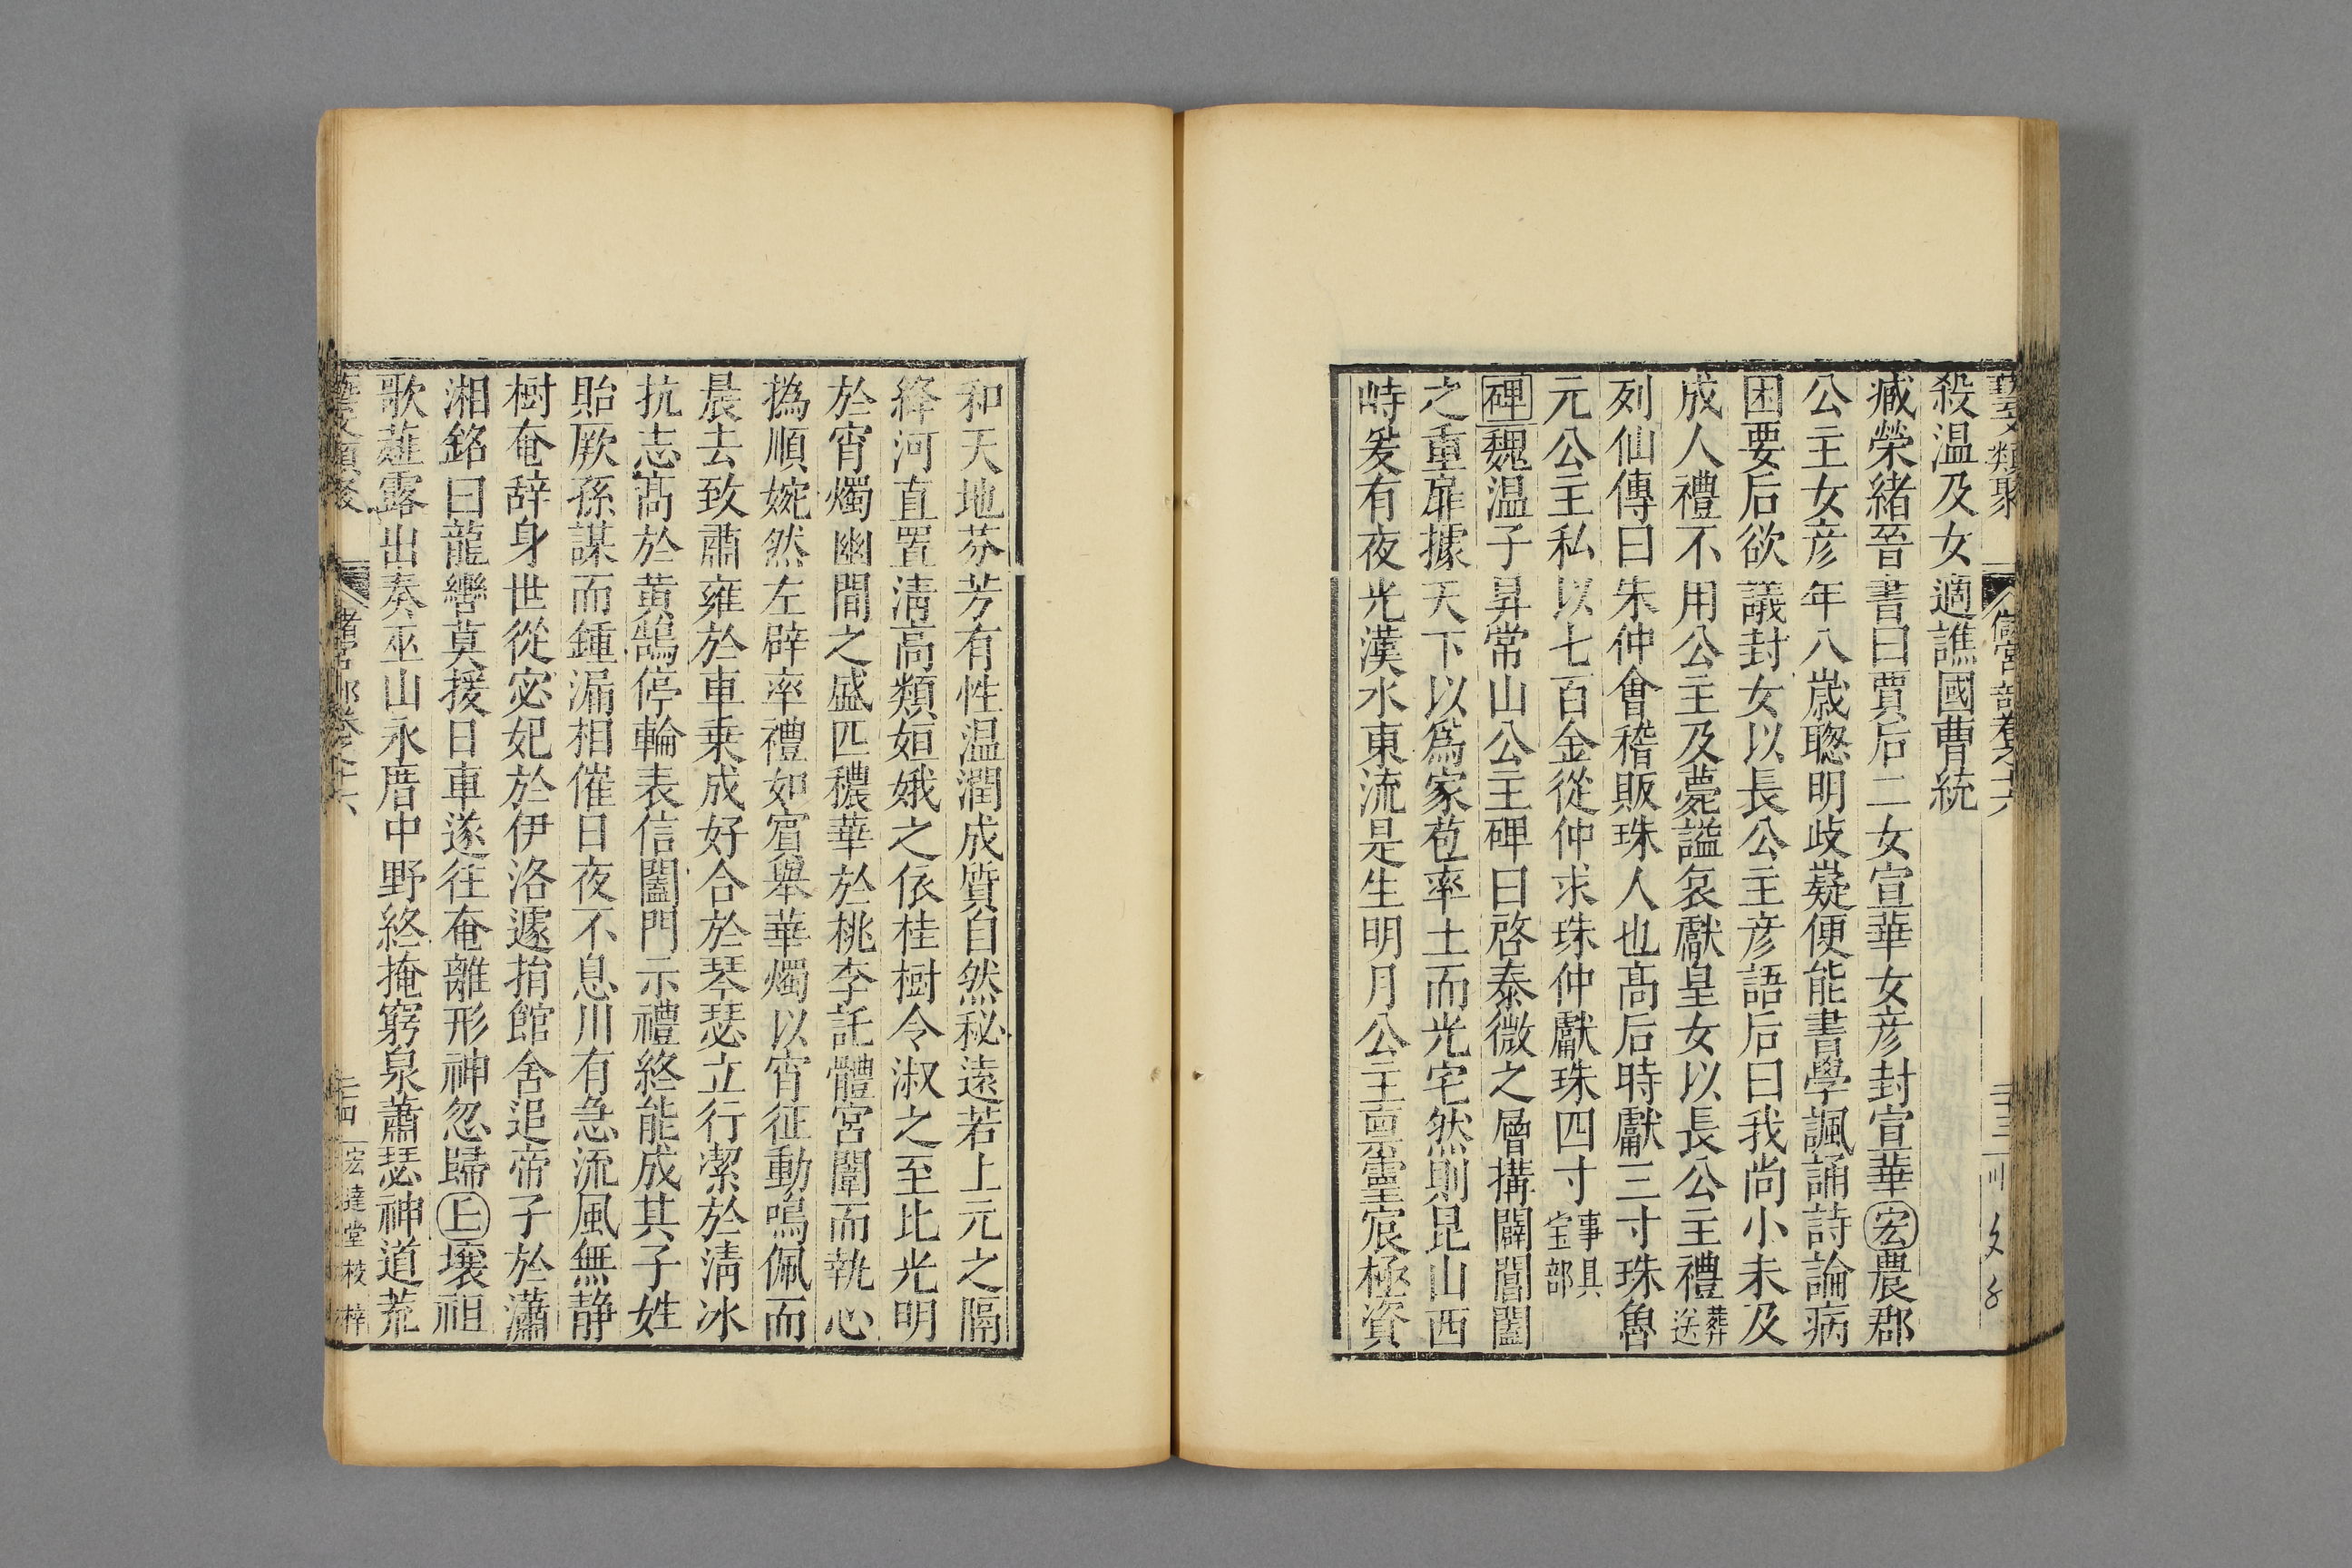 藝文類聚 儲宮部卷之十六
殺温及女適譙國曹統
臧榮緒晉書曰賈后二女宣華女彦封宣華宏農郡
公主女彦年八歳聰明歧嶷便能書學諷誦詩論病
困要后欲議封女以長公主彦語后曰我尚小未及
成人禮不用公主及薨謚哀獻皇女以長公主禮葬送
列仙傳曰朱仲會稽販珠人也髙后時獻三寸珠魯
元公主私以七百金從仲求珠仲獻珠四寸事具宝部
碑魏温子昇常山公主碑曰啓泰微之層搆闢閶闔
之重扉據天下以爲家苞率土而光宅然則昆山西
峙爰有夜光漢水東流是生明月公主禀靈宸極資
和天地芬芳有性温潤成質自然秘遠若上元之隔
絳河直置清高類姮娥之依桂樹令淑之至比光明
於宵燭幽閒之盛匹穠華於桃李託體宮闈而執心
撝順婉然左辟率禮如賓舉華燭以宵征動鳴佩而
晨去致肅雍於車乗成好合於琴瑟立行潔於清冰
抗志髙於黄鵠停輪表信闔門示禮終能成其子姓
貽厥孫謀而鍾漏相催日夜不息川有急流風無静
樹奄辞身世從宓妃於伊洛遽捐館舍追帝子於瀟
湘銘曰龍轡莫援日車遂往奄離形神忽歸上壤祖
歌薤露出奏巫山永厝中野終掩窮泉蕭瑟神道荒
藝文類聚 儲宮部卷之十六 二十四 宏達堂校梓